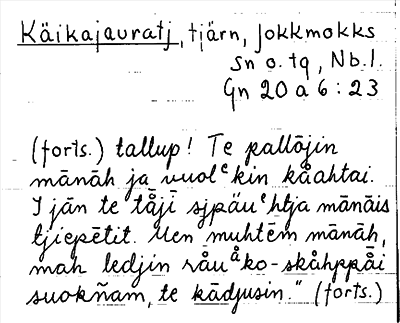 Käikajauratj, tjärn, Jokkmokks
sn o. tq, Nb.l.
Gn 20 a 6:23
(forts.) tallup! Te pallōjin
mānāh ja vuolᵉkin kåahtai.
I jān te tåjī sjpäuᵉhtja mānāis
tjiepētit. Men muhtēm mānāh,
mah ledjin råuᵃ̊ko-skåhppåi
suokñam, te kādjusin." (forts.)